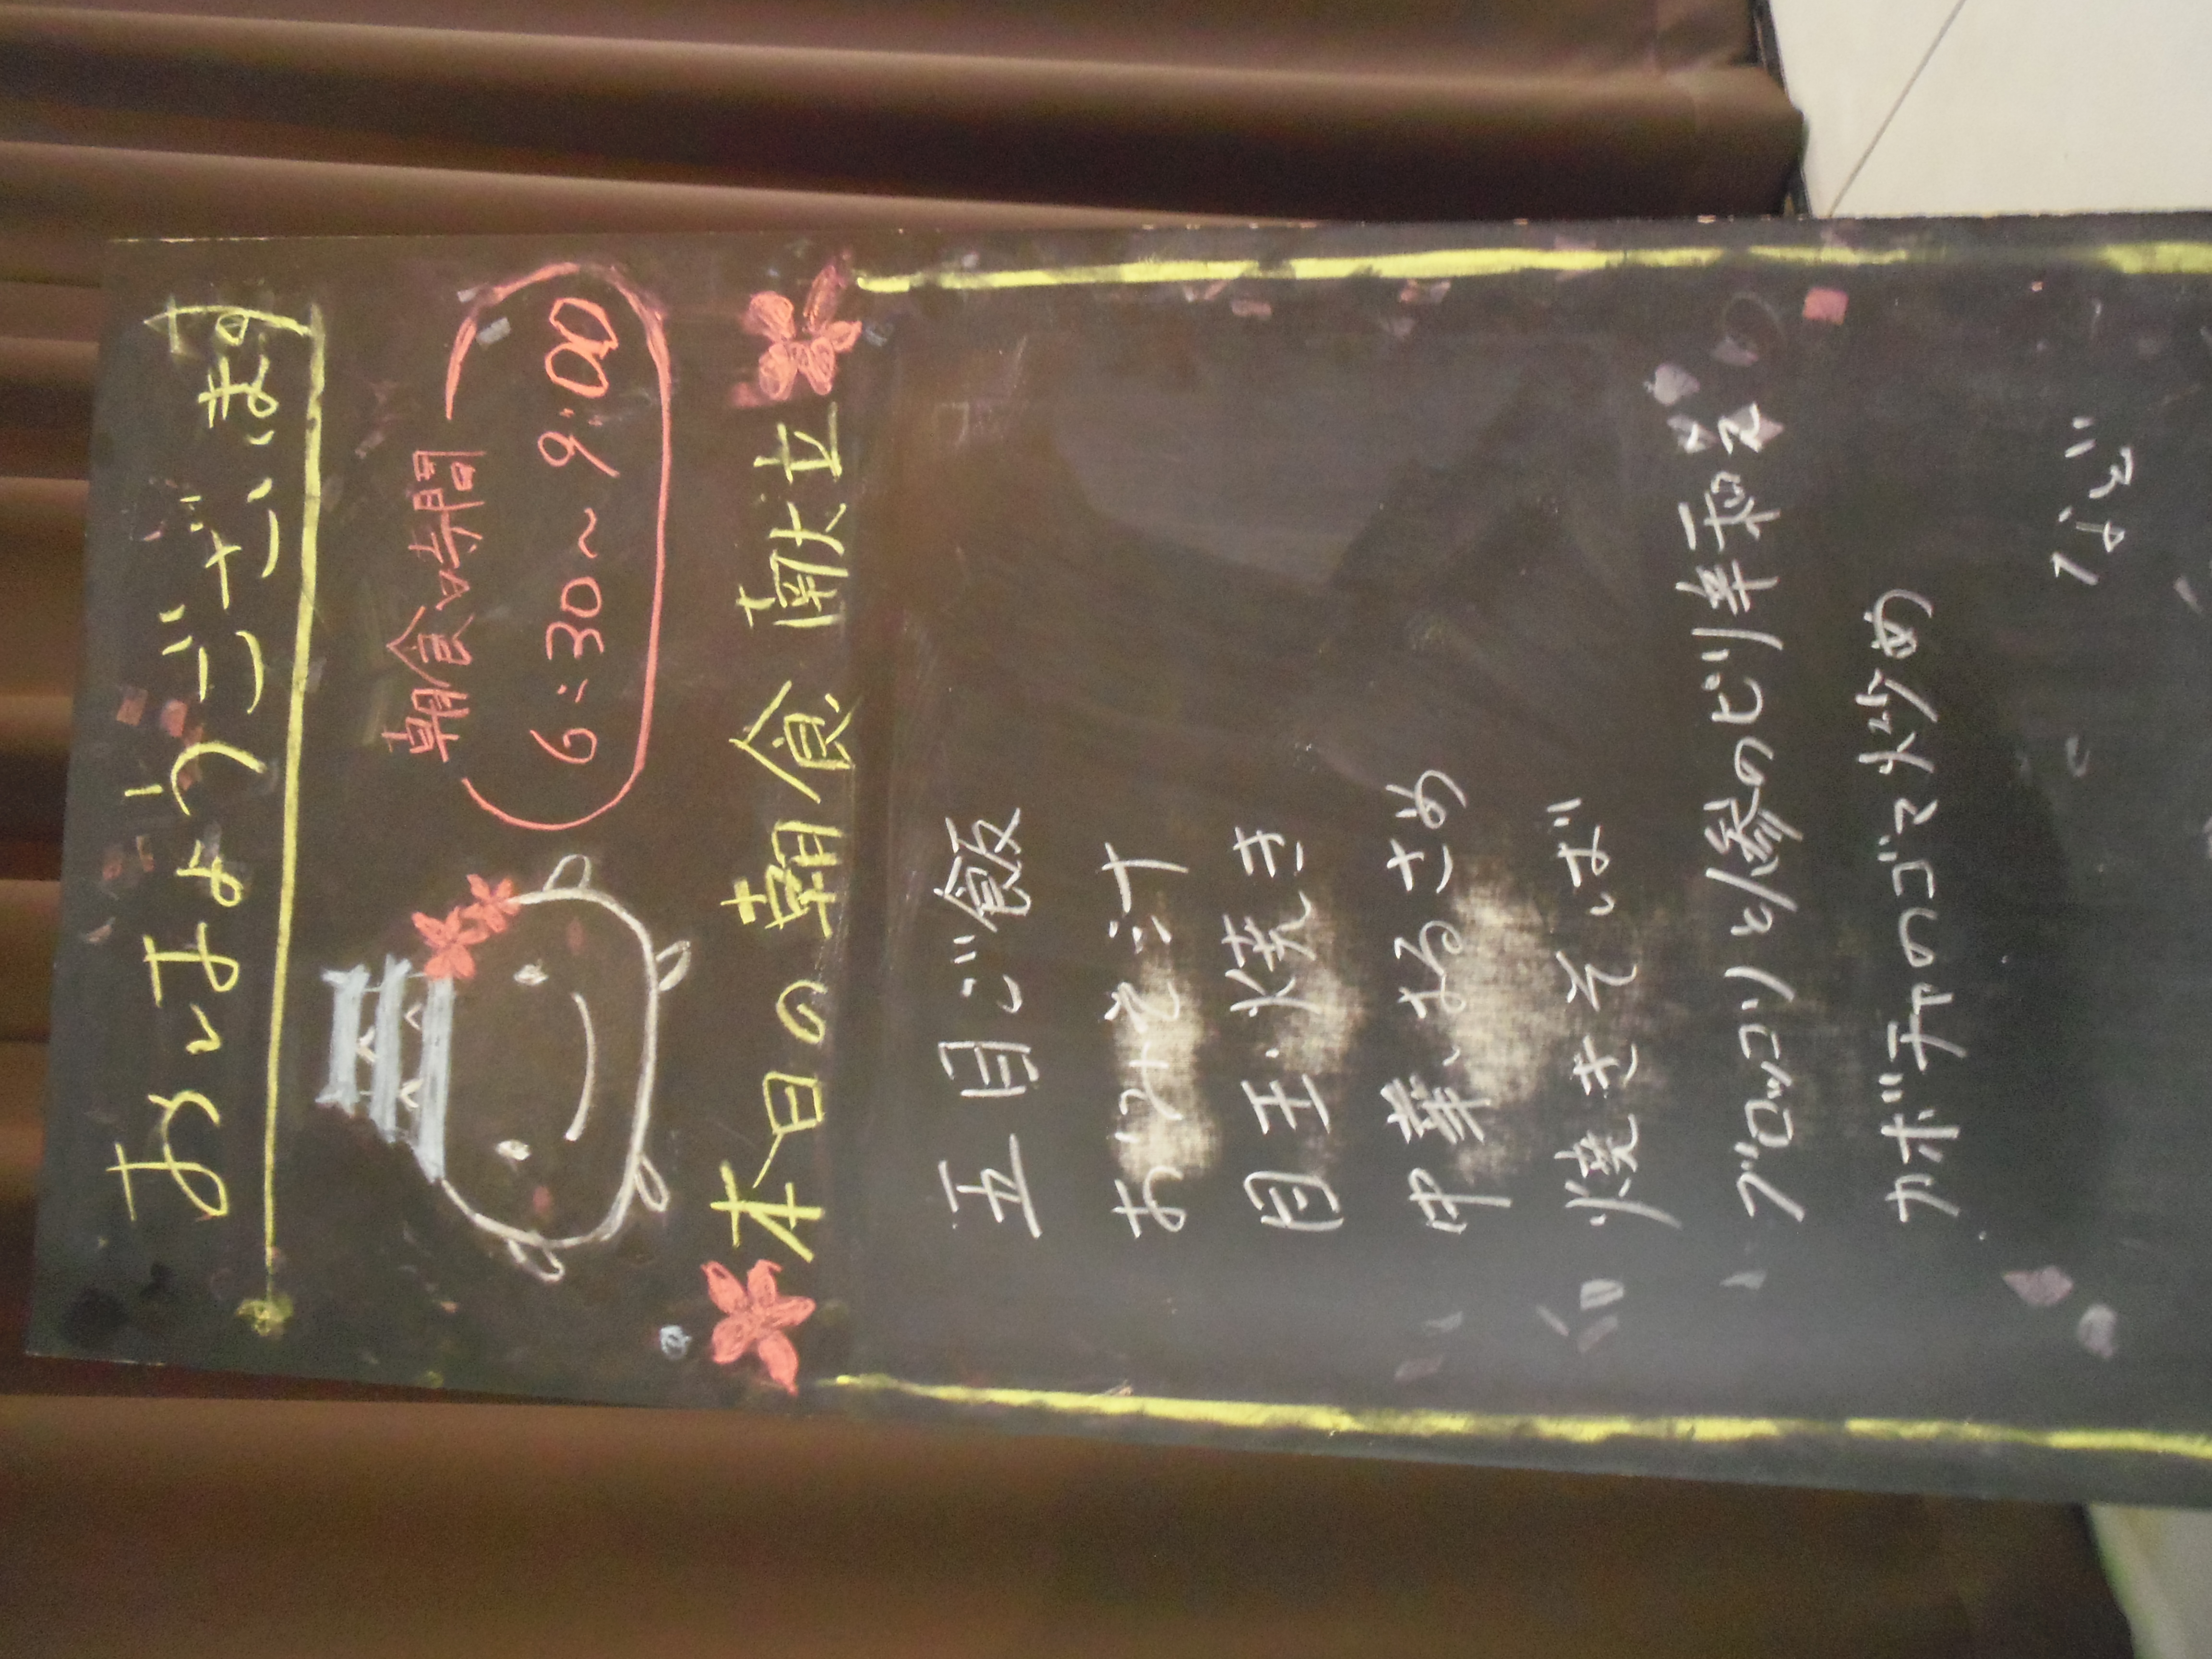 おはようございます
朝食時間
6:30～9:00
本日の朝食献立
五目ご飯
おみそ汁
目玉焼き
中華はるさめ
焼きそば
ブロッコリと人参のピリ辛和え
カボチャのゴマ炒め
など